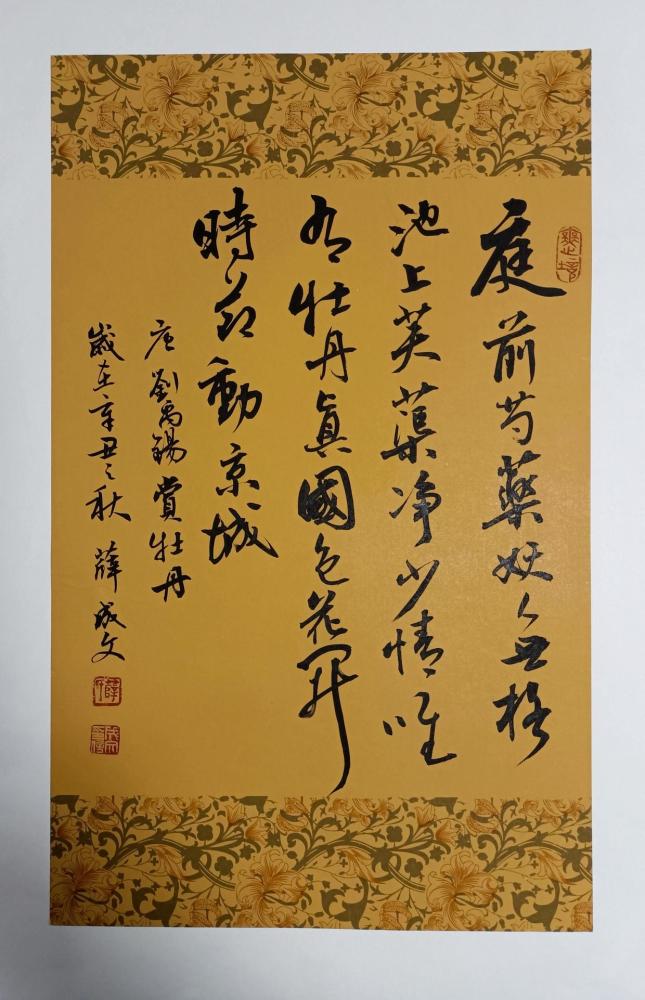 庭前芍藥妖無格
池上芙蕖净少情唯
有牡丹真國色花開
時節動京城
唐劉禹錫賞牡丹
歲在辛丑之秋 薛成文